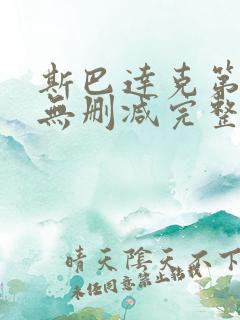 斯巴達克第
無删减完整
晴天陰天不下
未经同意禁止轉載